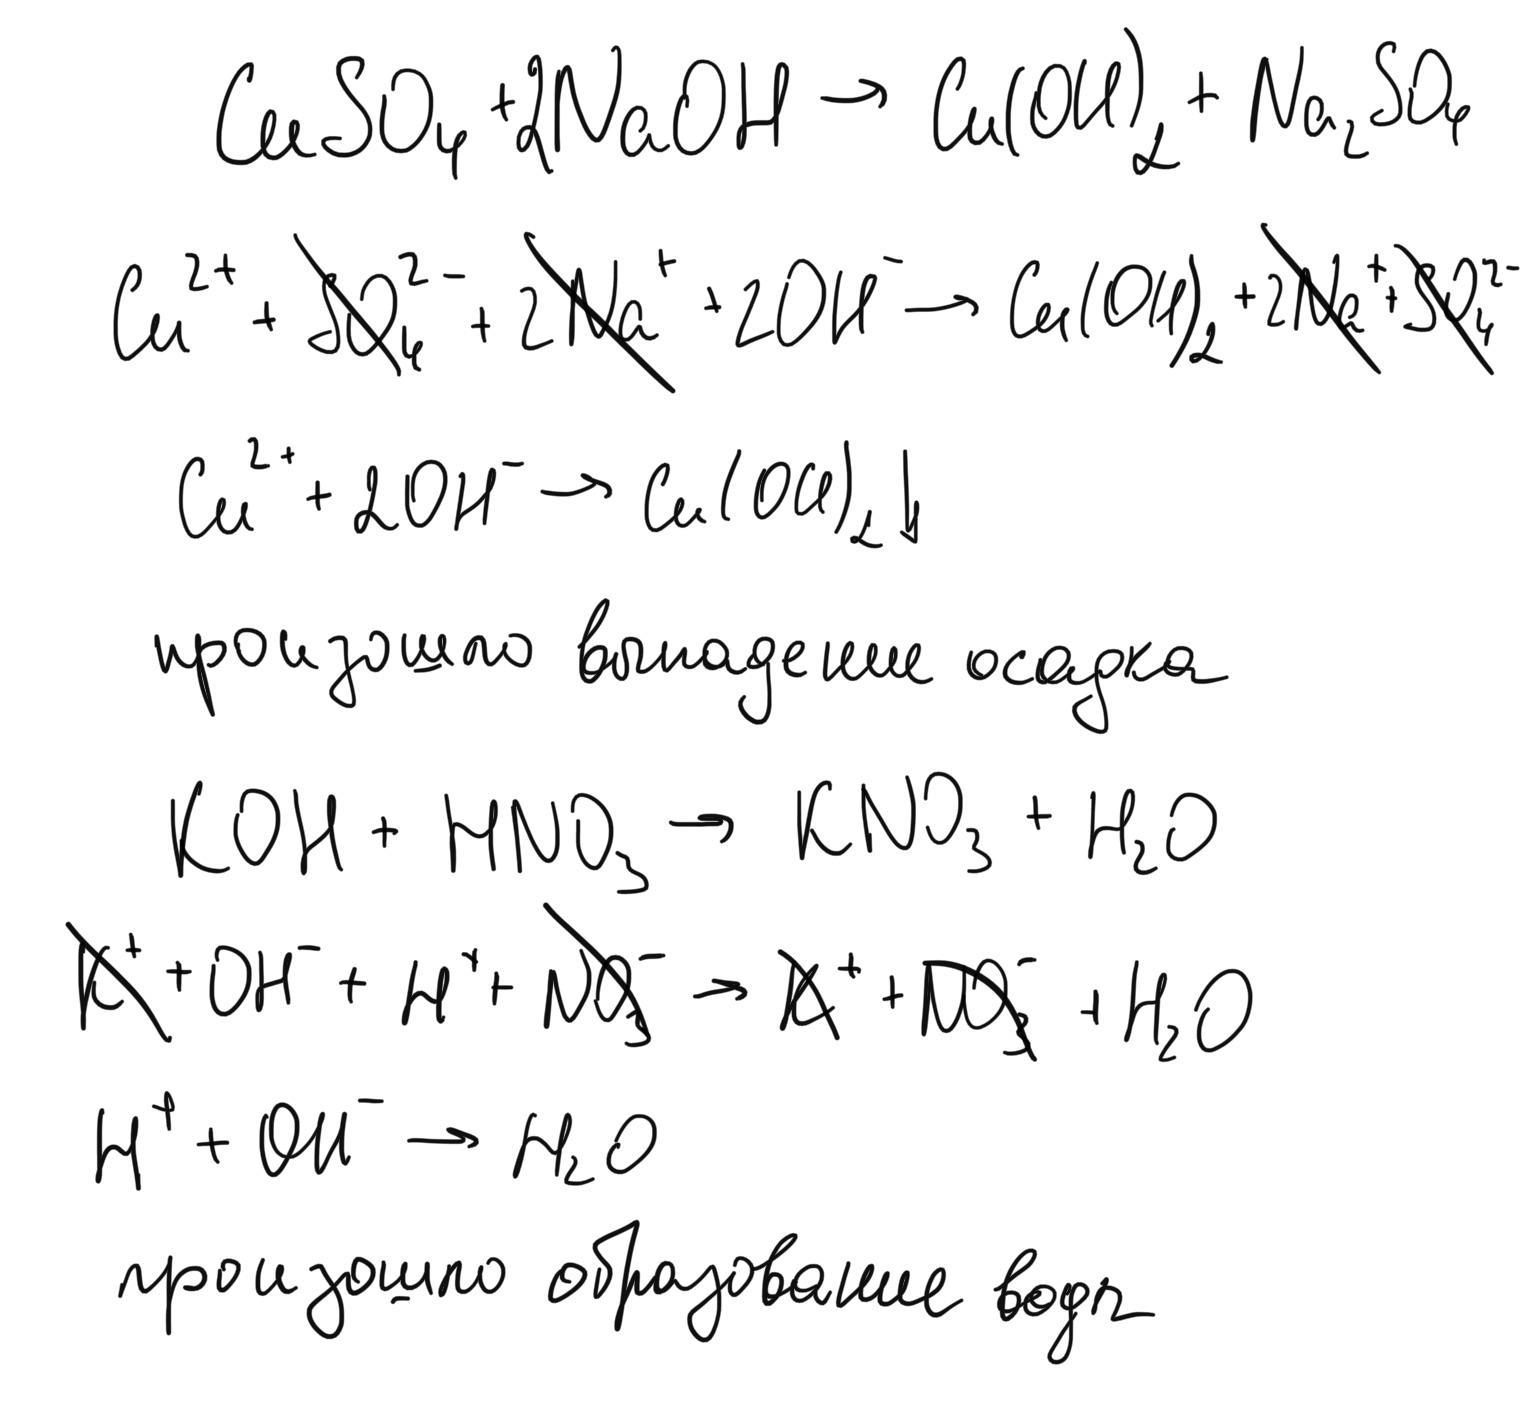 CuSO₄ + 2NaOH → Cu(OH)₂ + Na₂SO₄
Cu²⁺ + SO₄²⁻ + 2Na⁺ + 2OH⁻ → Cu(OH)₂ + 2Na⁺ + SO₄²⁻
Cu²⁺ + 2OH⁻ → Cu(OH)₂↓
произошло выпадение осадка
KOH + HNO₃ → KNO₃ + H₂O
K⁺ + OH⁻ + H⁺ + NO₃⁻ → K⁺ + NO₃⁻ + H₂O
H⁺ + OH⁻ → H₂O
произошло образование воды